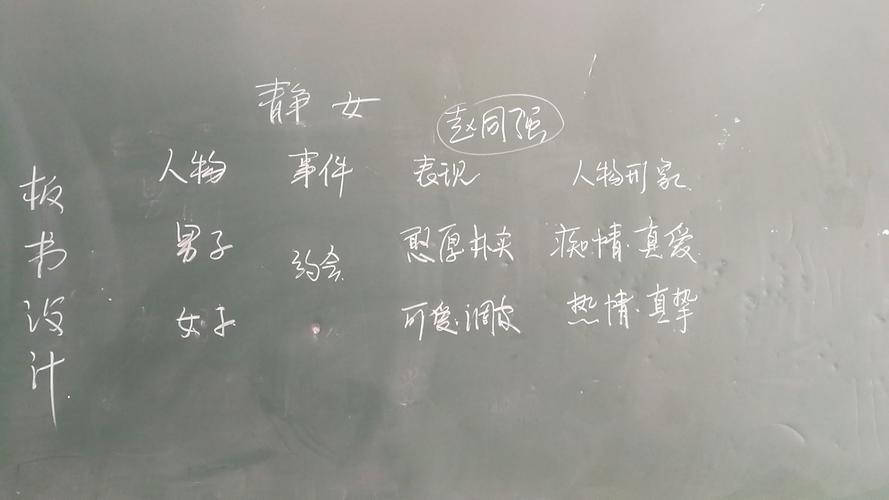 静女
赵同强
板书设计
人物 事件 表现 人物形象
男子 约会 憨厚 痴情·真爱
女子 可爱·调皮 热情·真挚